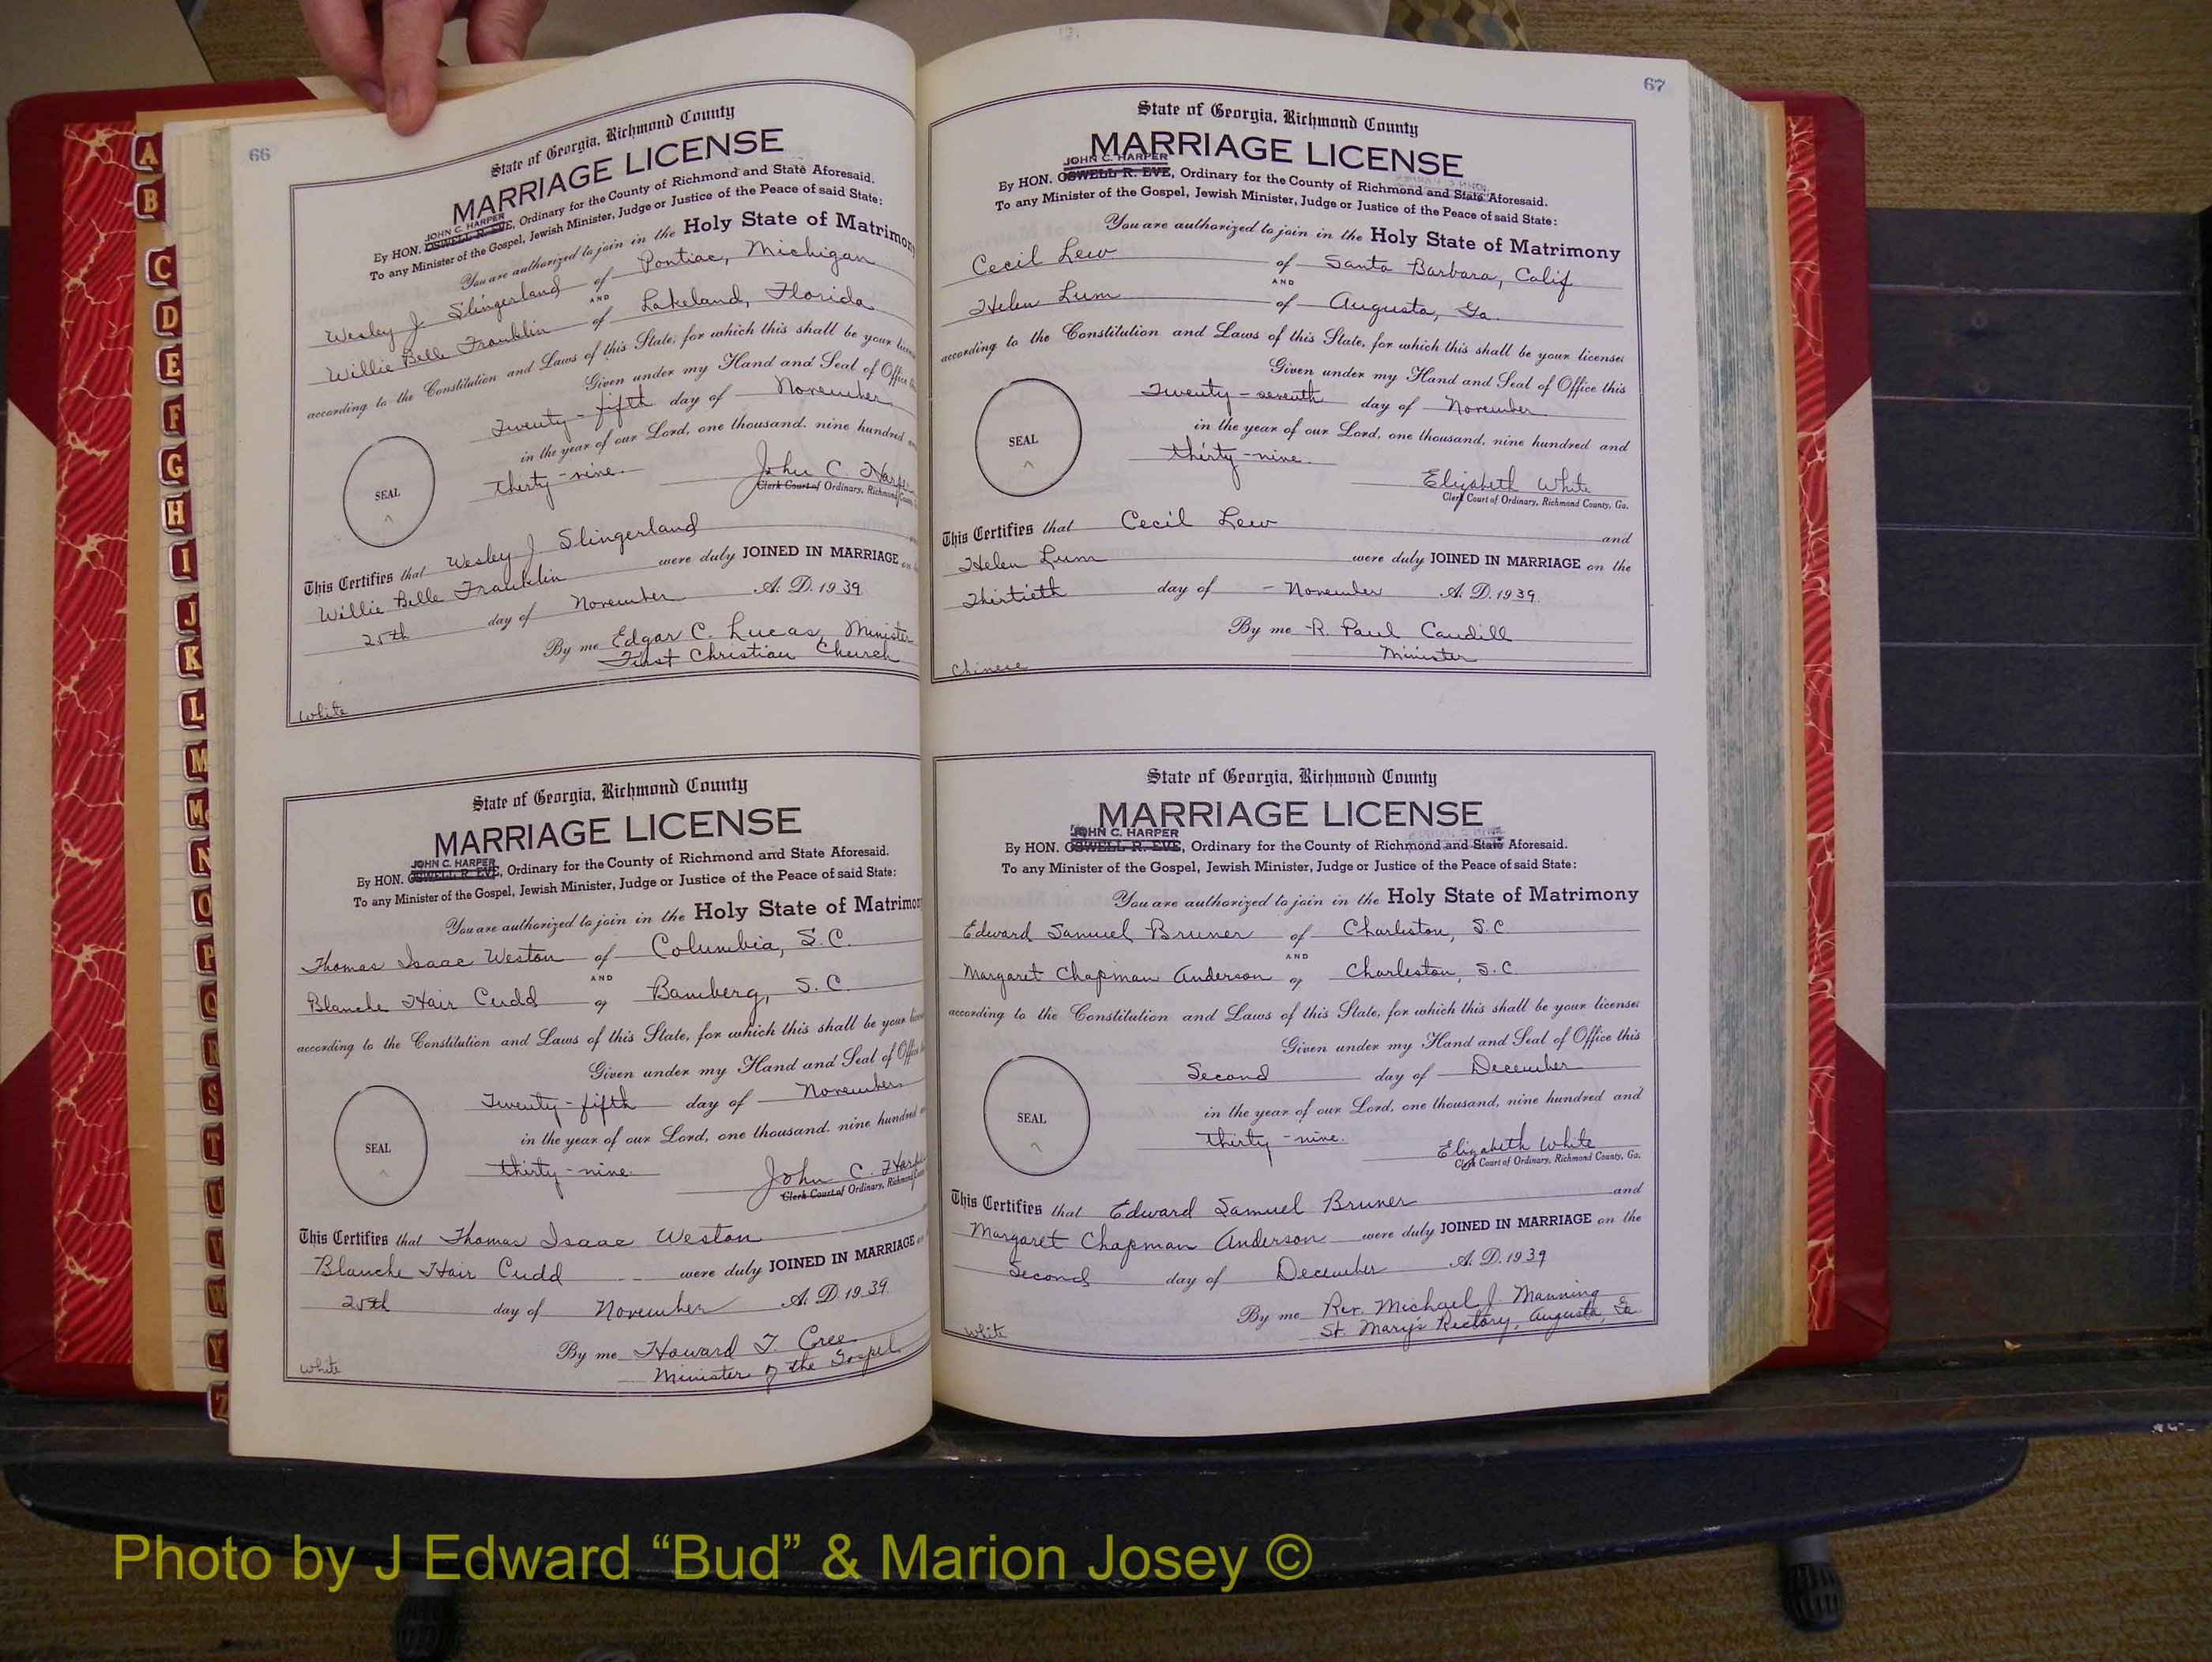 66
State of Georgia, Richmond County
MARRIAGE LICENSE
JOHN C. HARPER
By HON. OSWELL R. EVE, Ordinary for the County of Richmond and State Aforesaid.
To any Minister of the Gospel, Jewish Minister, Judge or Justice of the Peace of said State:
You are authorized to join in the Holy State of Matrimony
Wesley J. Slingerland of Pontiac, Michigan
AND
Willie Belle Franklin of Lakeland, Florida
according to the Constitution and Laws of this State, for which this shall be your
Given under my Hand and Seal of Office
Twenty-fifth day of November
in the year of our Lord, one thousand, nine hundred
SEAL
thirty-nine. John C. Harper
Clerk Court of Ordinary, Richmond
This Certifies that Wesley J Slingerland
Willie Belle Franklin were duly JOINED IN MARRIAGE on
25th day of November A. D. 1939
By me Edgar C. Lucas, Minister
First Christian Church
White
State of Georgia, Richmond County
MARRIAGE LICENSE
JOHN C. HARPER
By HON. OSWELL R. EVE, Ordinary for the County of Richmond and State Aforesaid.
To any Minister of the Gospel, Jewish Minister, Judge or Justice of the Peace of said State:
You are authorized to join in the Holy State of Matrimon
Thomas Isaac Weston of Columbia, S.C.
AND
Blanche Hair Cudd of Bamberg, S.C.
according to the Constitution and Laws of this State, for which this shall be your
Given under my Hand and Seal of Office
Twenty-fifth day of November
in the year of our Lord, one thousand, nine hundred
SEAL
thirty-nine. John C. Harp
Clerk Court of Ordinary, Richmond
This Certifies that Thomas Isaac Weston
Blanche Hair Cudd were duly JOINED IN MARRIAGE
25th day of November A. D. 1939
By me Howard T. Cree
Minister of the Gospel
White
67
State of Georgia, Richmond County
MARRIAGE LICENSE
JOHN C. HARPER
By HON. OSWELL R. EVE, Ordinary for the County of Richmond and State Aforesaid.
To any Minister of the Gospel, Jewish Minister, Judge or Justice of the Peace of said State:
You are authorized to join in the Holy State of Matrimony
Cecil Lew of Santa Barbara, Calif
AND
Helen Lum of Augusta, Ga.
according to the Constitution and Laws of this State, for which this shall be your license:
Given under my Hand and Seal of Office this
Twenty-seventh day of November
in the year of our Lord, one thousand, nine hundred and
SEAL
thirty-nine.
Elizabeth White
Clerk Court of Ordinary, Richmond County, Ga.
This Certifies that Cecil Lew and
Helen Lum were duly JOINED IN MARRIAGE on the
Thirtieth day of - November A. D. 1939.
By me R. Paul Caudill
Minister
Chinese
State of Georgia, Richmond County
MARRIAGE LICENSE
JOHN C. HARPER
By HON. OSWELL R. EVE, Ordinary for the County of Richmond and State Aforesaid.
To any Minister of the Gospel, Jewish Minister, Judge or Justice of the Peace of said State:
You are authorized to join in the Holy State of Matrimony
Edward Samuel Bruner of Charleston, S.C.
AND
Margaret Chapman Anderson of Charleston, S.C.
according to the Constitution and Laws of this State, for which this shall be your license:
Given under my Hand and Seal of Office this
Second day of December
in the year of our Lord, one thousand, nine hundred and
SEAL
thirty-nine.
Elizabeth White
Clerk Court of Ordinary, Richmond County, Ga.
This Certifies that Edward Samuel Bruner and
Margaret Chapman Anderson were duly JOINED IN MARRIAGE on the
Second day of December A. D. 1939
By me Rev. Michael J. Manning
St. Mary's Rectory, Augusta, Ga
White
A
B
C
D
E
F
G
H
I
J
K
L
M
Mc
N
O
P
Q
R
S
T
U
V
W
Y
Z
Photo by J Edward “Bud” & Marion Josey ©